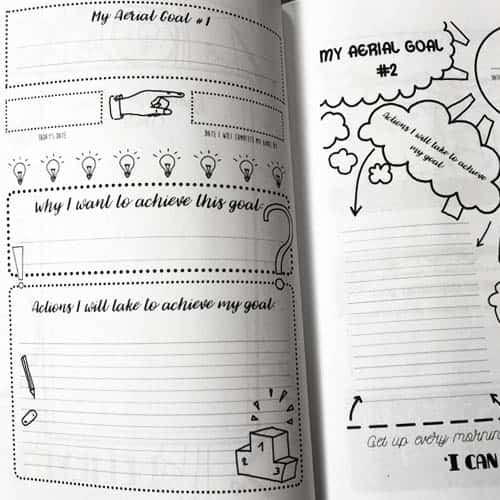 My Aerial Goal #1
TODAY'S DATE
DATE I WILL COMPLETE MY GOAL BY
Why I want to achieve this goal:
?
!
Actions I will take to achieve my goal:
1
2
3
MY AERIAL GOAL
#2
Actions I will take to achieve
my goal
Get up every mornin
"I CAN